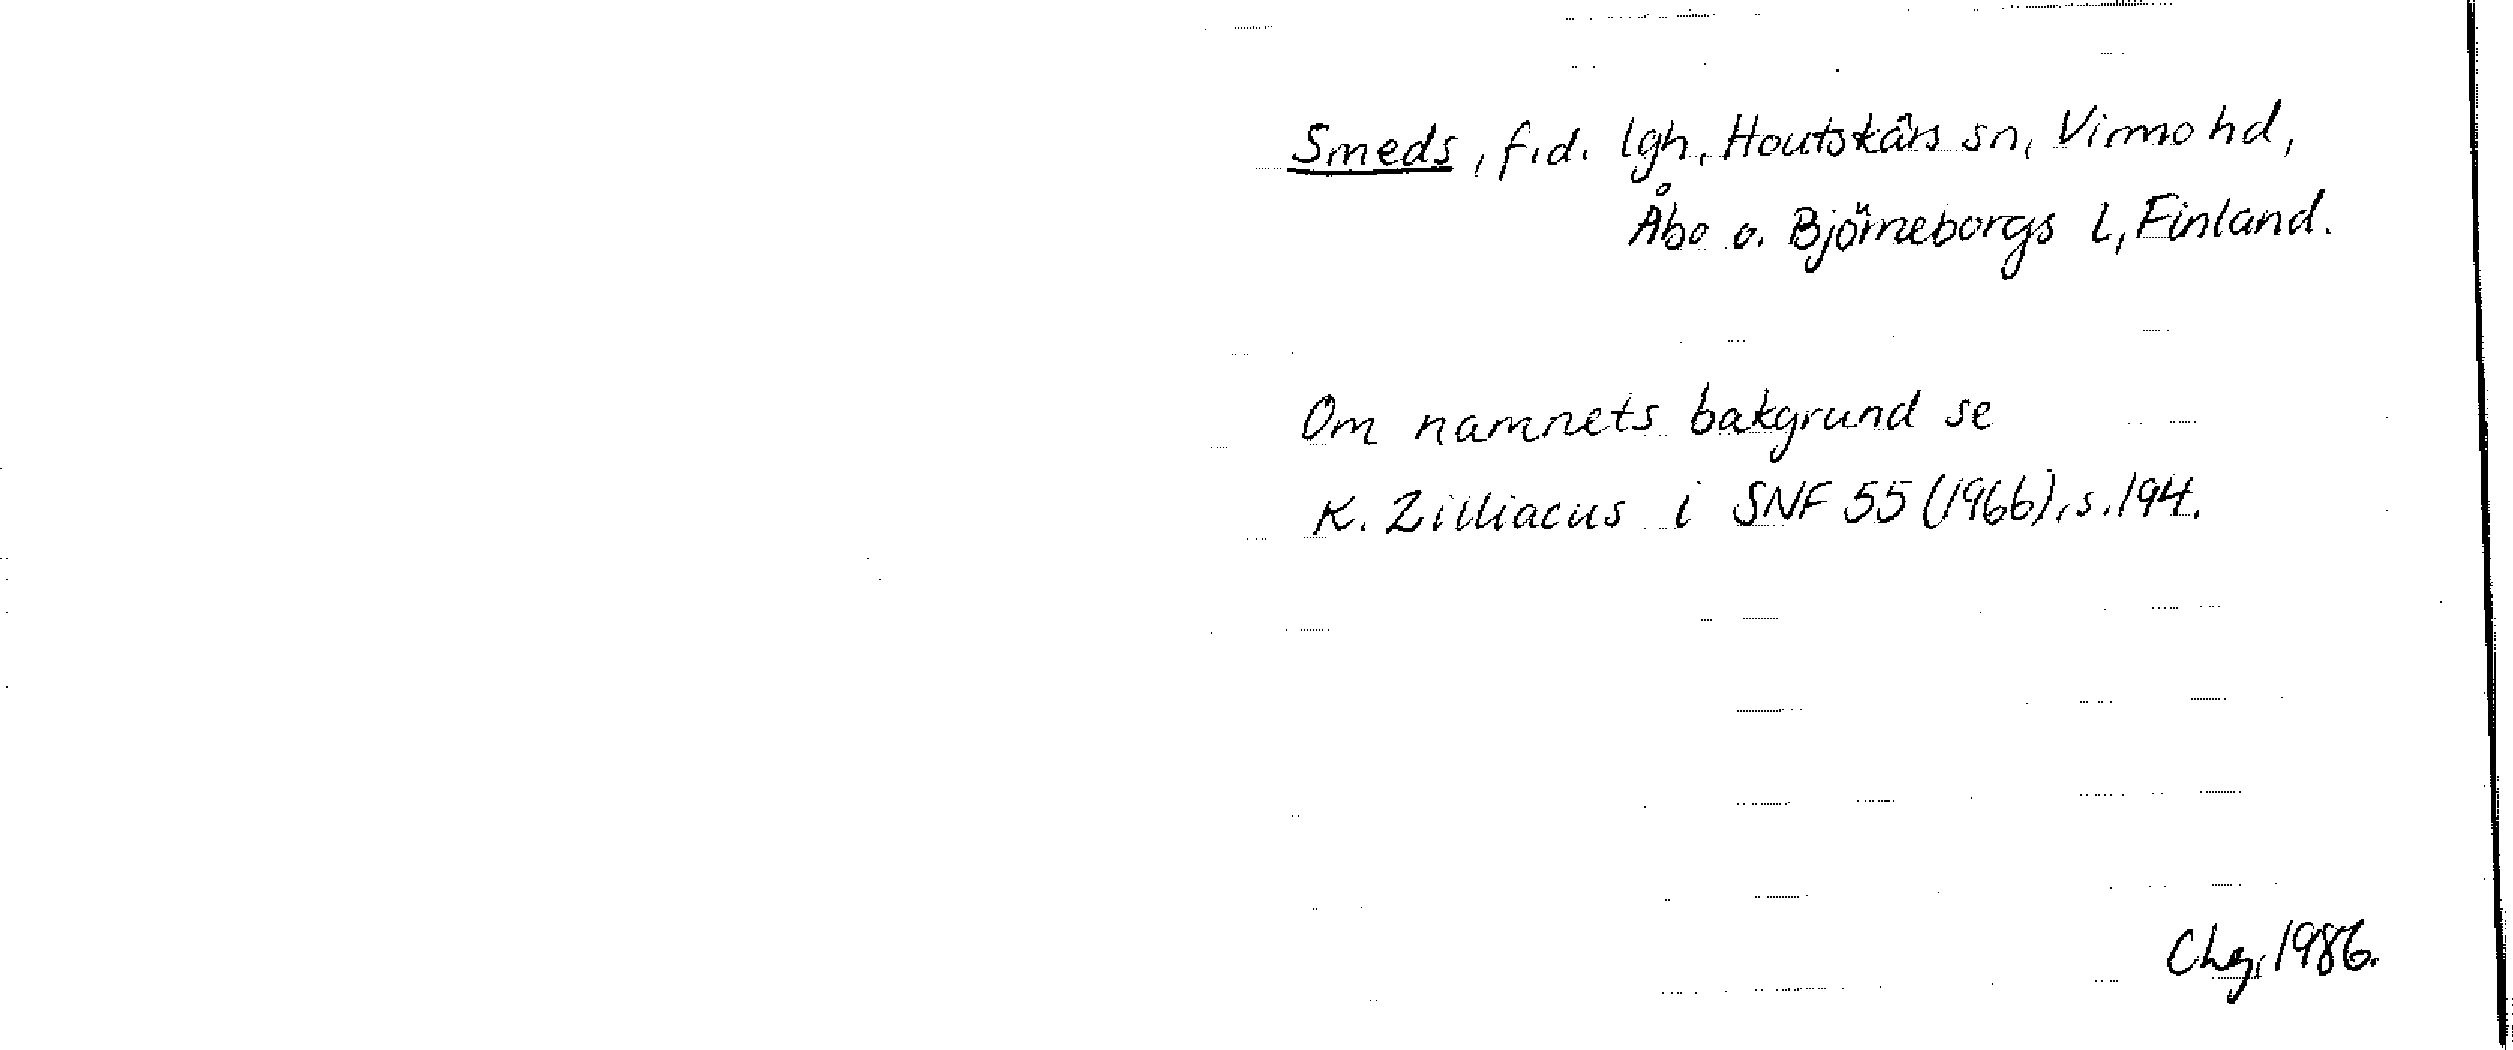 Smeds, f.d. lgh, Houtskärs sn, Virmo hd,
Åbo o. Björneborgs l, Finland.
Om namnets bakgrund se
K. Zilliacus i SNF 55 (1966), s. 194.
Chg, 1986.